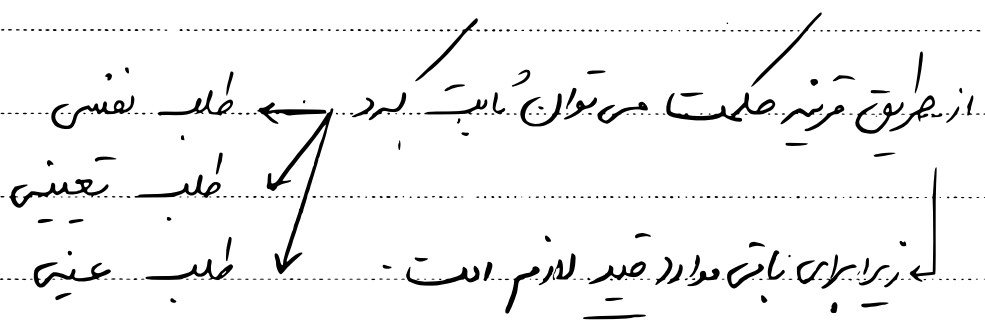 از طریق قرینه حکمت می توان ثابت کرد ← طلب نفسی
طلب تعیینی
زیرا برای باقی موارد قید لازم است. طلب عینی